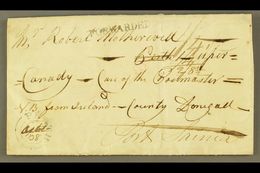 FORWARDED
Mr. Robert Motherwell
Perth Upper
Canada - Care of the Postmaster
N.B. from Ireland - County Donegall
Port Sarnia